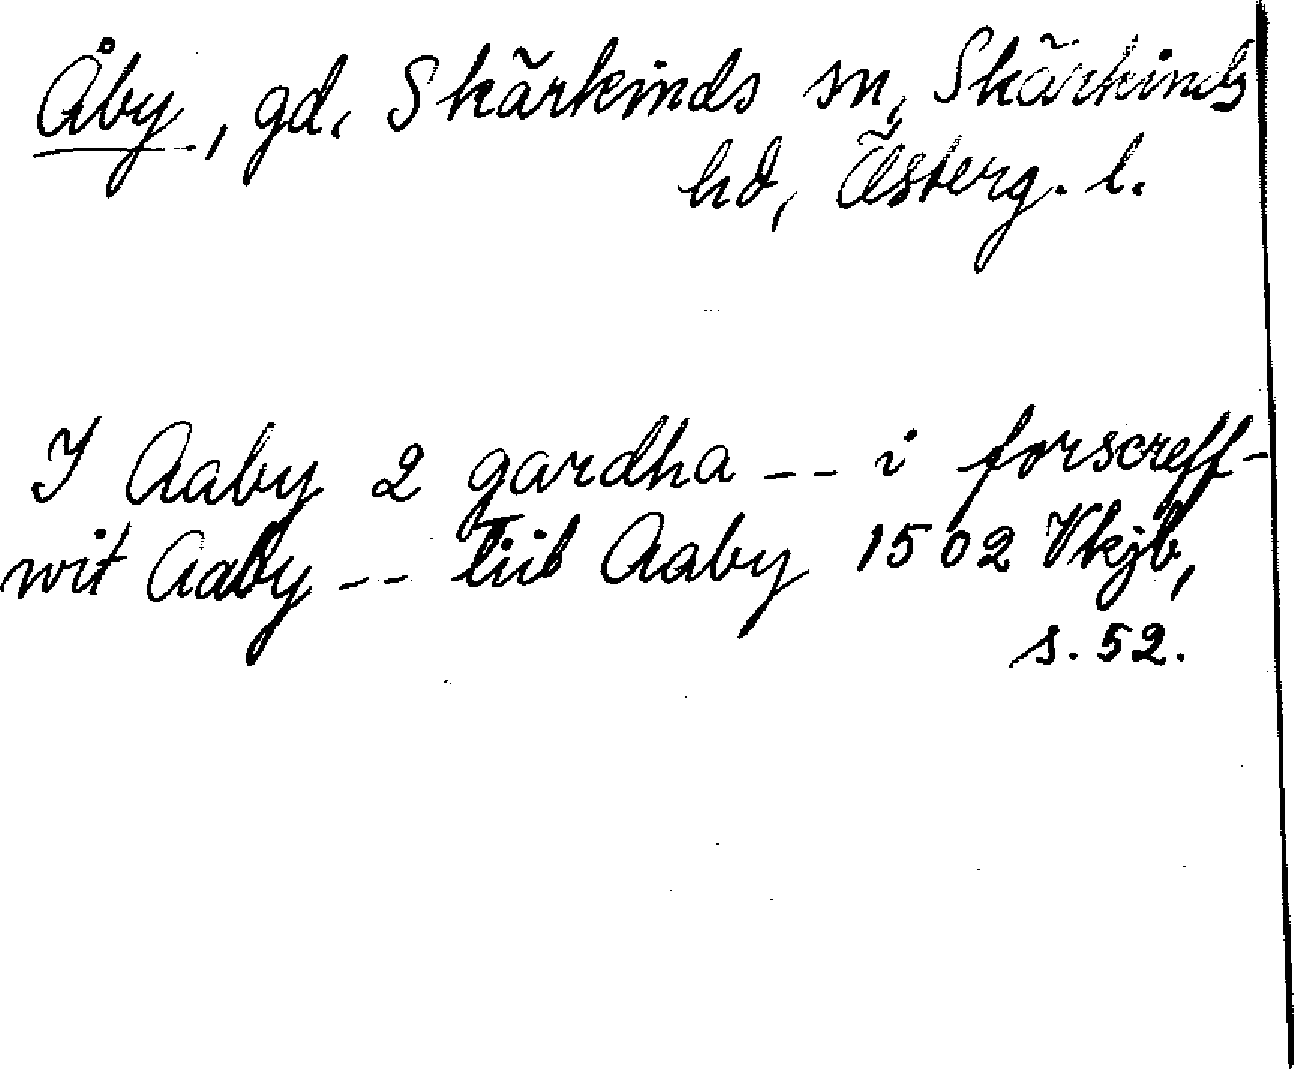 Åby, gd, Skärkinds sn, Skärkinds
hd, Österg. l.
I Aaby 2 gardha -- i forscreff-
wit Aaby -- tiil Aaby 1502 Vkjb,
s. 52.